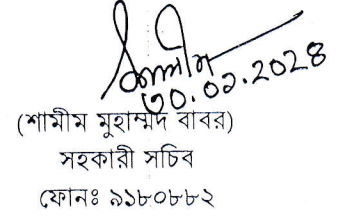 ৩০.০১.২০২৪
(শামীম মুহাম্মদ বাবর)
সহকারী সচিব
ফোনঃ ৯১৮০৮৮২